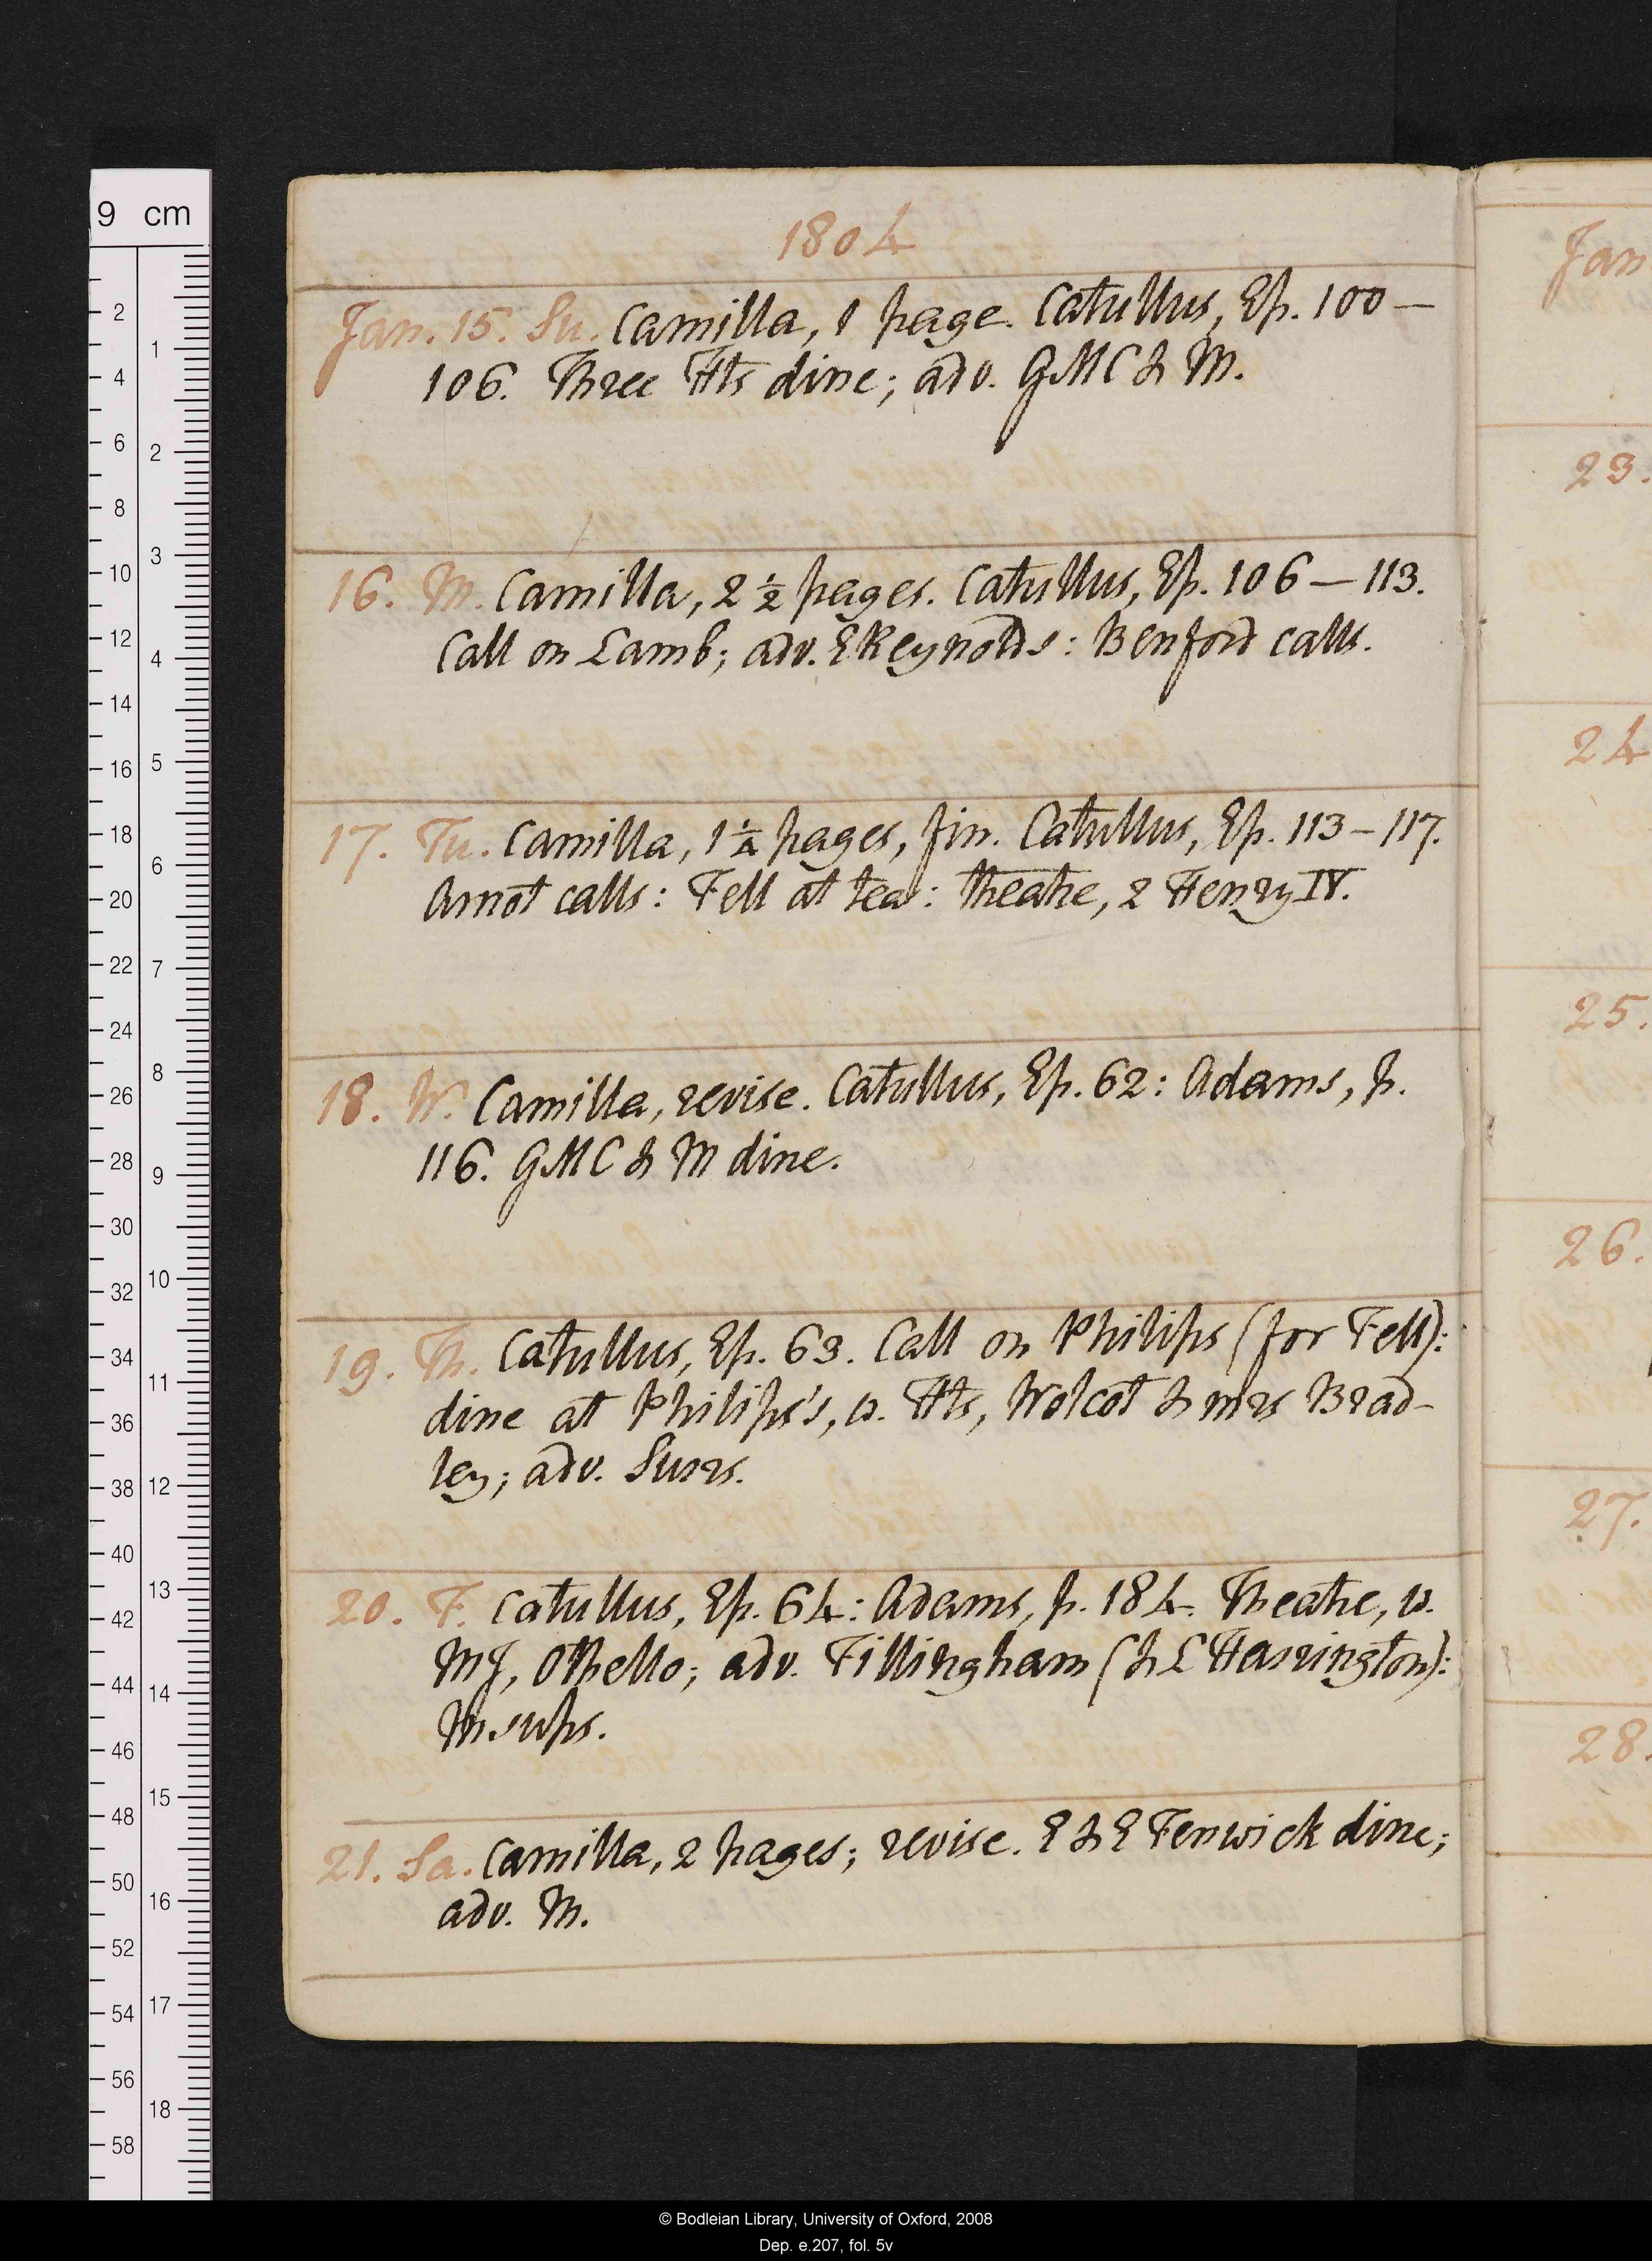 1804
Jan. 15. Su. Camilla, 1 page. Catullus, Ep. 100–
106. Three Hts dine; adv. GMC & M.
16. M. Camilla, 2 ½ pages. Catullus, Ep. 106–113.
Call on Lamb; adv. E Reynolds: Benford calls.
17. Tu. Camilla, 1 ½ pages, fin. Catullus, Ep. 113–117.
Arnot calls: Fell at tea: theatre, 2 Henry IV.
18. W. Camilla, revise. Catullus, Ep. 62: Adams, p.
116. GMC & M dine.
19. Th. Catullus, Ep. 63. Call on Philips (for Fell):
dine at Philips's, w. Hts, Wolcot & mrs Brad-
ley; adv. Surr.
20. F. Catullus, Ep. 64: Adams, p. 184. Theatre, w.
MJ, Othello; adv. Fillingham (& L Harrington):
M sups.
21. Sa. Camilla, 2 pages; revise. E & E Fenwick dine;
adv. M.
Jan
23.
24
25.
26.
27.
28.
9 cm
2
4
6
8
10
12
14
16
18
20
22
24
26
28
30
32
34
36
38
40
42
44
46
48
50
52
54
56
58
1
2
3
4
5
6
7
8
9
10
11
12
13
14
15
16
17
18
© Bodleian Library, University of Oxford, 2008
Dep. e.207, fol. 5v